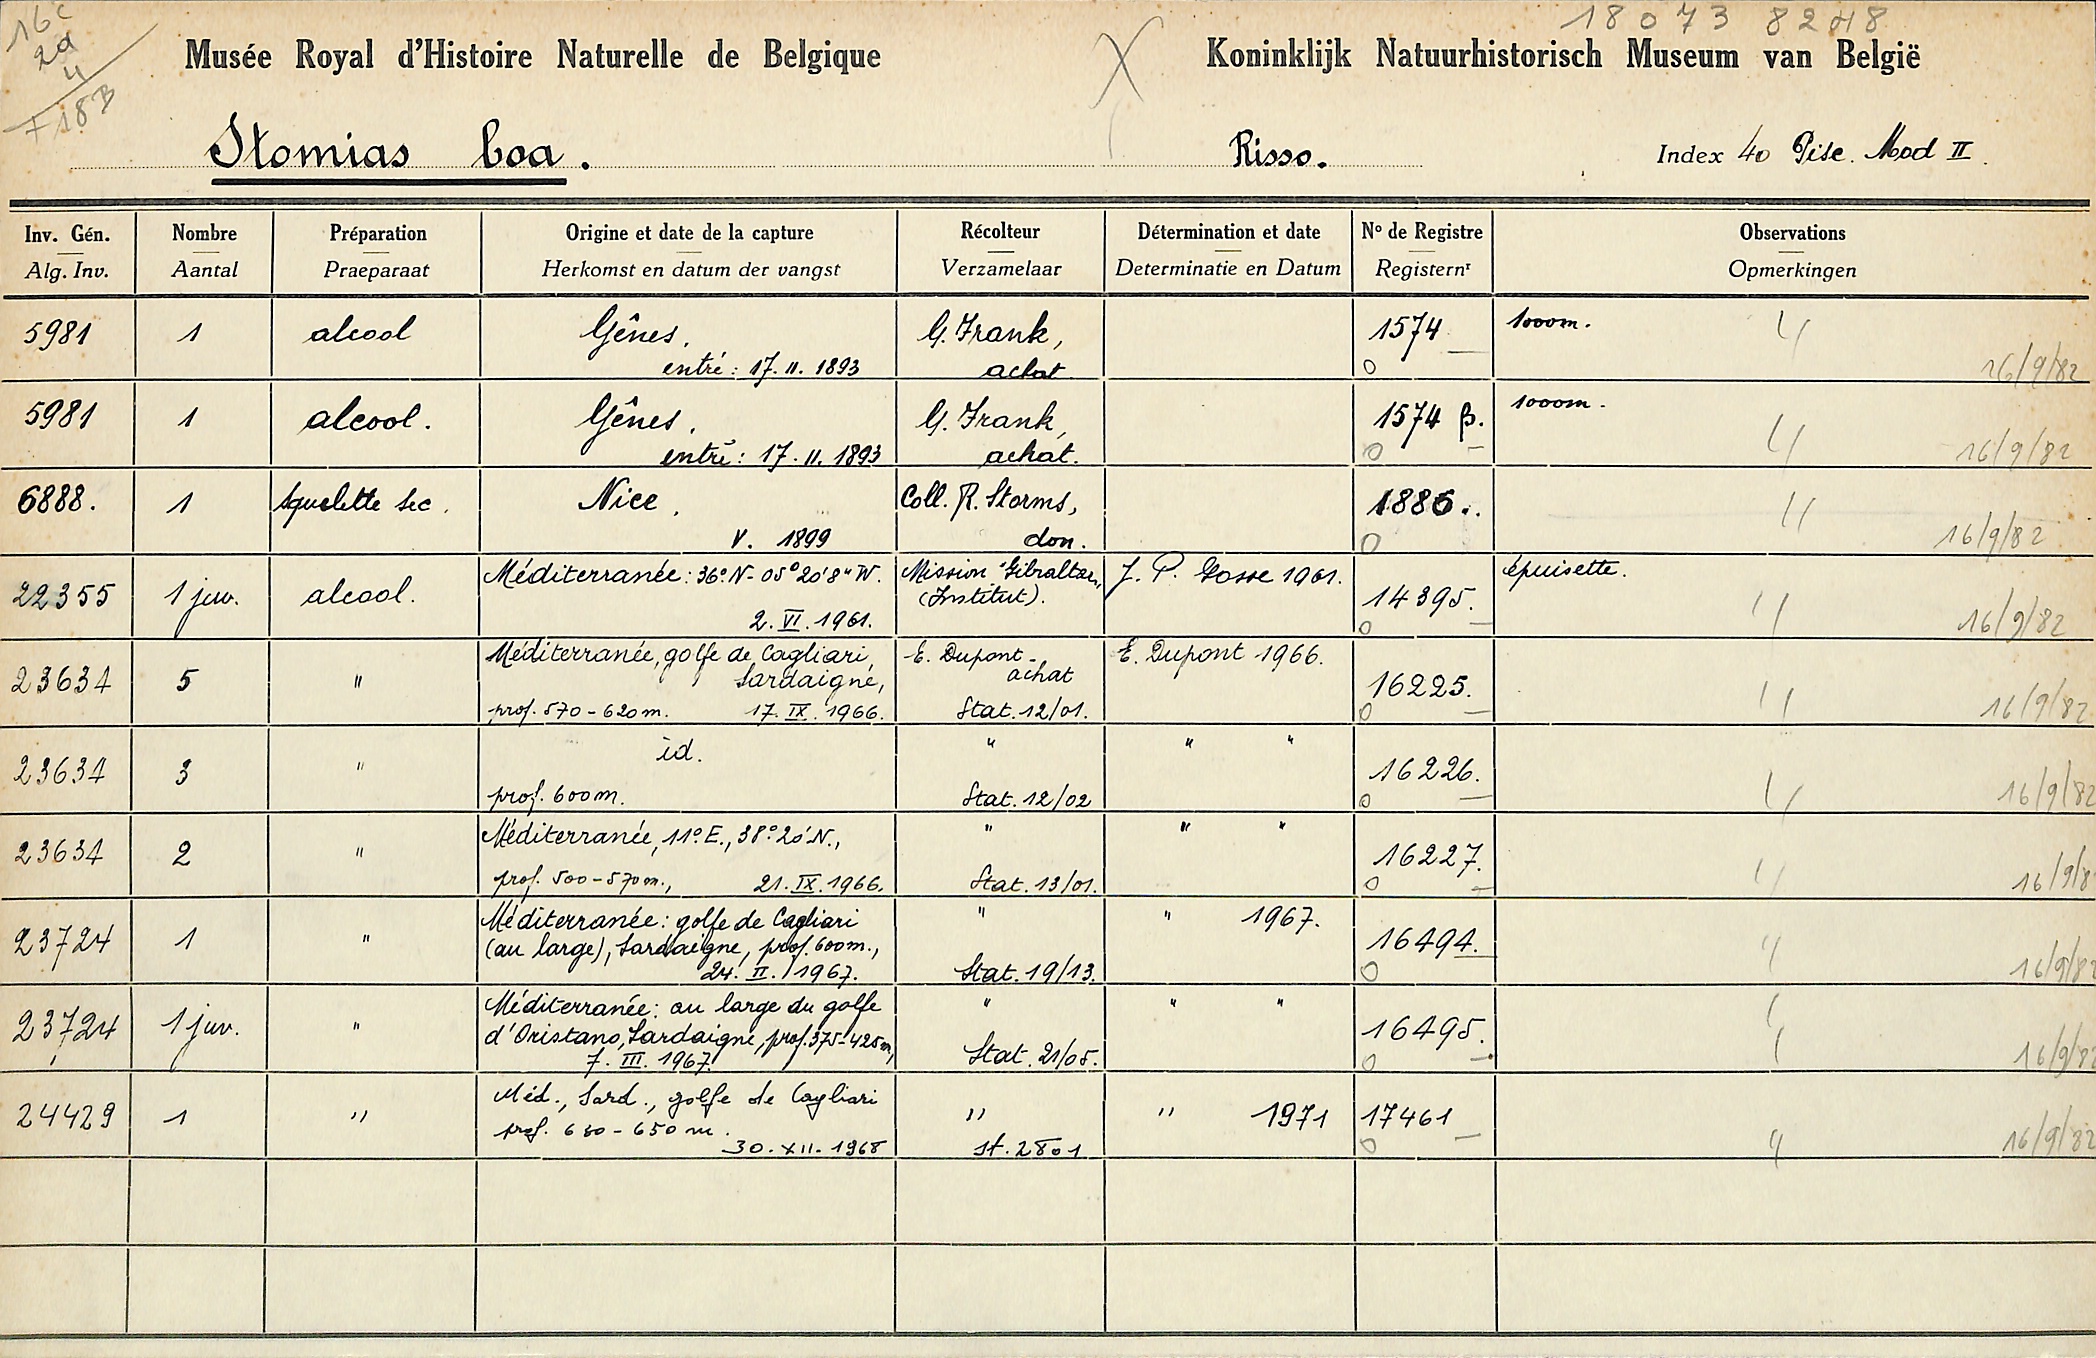 16c
2a
4
F18B
18073 8248
Musée Royal d'Histoire Naturelle de Belgique
Koninklijk Natuurhistorisch Museum van België
Stomias boa. Risso. Index 40 Pisc. Mod II.
Inv. Gén. Nombre Préparation Origine et date de la capture Récolteur Détermination et date Nº de Registre Observations
Alg. Inv. Aantal Praeparaat Herkomst en datum der vangst Verzamelaar Determinatie en Datum Registernr Opmerkingen
5981 1 alcool Gênes. G. Frank, 1574 1000m.
entré: 17. II. 1893 achat 16/9/82
5981 1 alcool. Gênes. G. Frank, 1574 β. 1000m.
entré: 17. II. 1893 achat. 16/9/82
6888. 1 Squelette sec. Nice. Coll. R. Storms, 1886.
V. 1899 don. 16/9/82
22355 1 juv. alcool. Méditerranée: 36º N - 05º 20' 8" W. Mission "Gibraltar" J. P. Gosse 1961. 14395. épuisette.
(Institut).
2. VI. 1961. 16/9/82
23634 5 " Méditerranée, golfe de Cagliari, E. Dupont - E. Dupont 1966. 16225.
Sardaigne, achat
prof. 570 - 620 m. 17. IX. 1966. Stat. 12/01. 16/9/82
23634 3 " id. " " " 16226.
prof. 600 m. Stat. 12/02 16/9/82
23634 2 " Méditerranée, 11º E., 38º 20' N., " " " 16227.
prof. 500 - 570 m., 21. IX. 1966. Stat. 13/01. 16/9/8
23724 1 " Méditerranée: golfe de Cagliari " " 1967. 16494.
(au large), Sardaigne, prof. 600 m.,
24. II. 1967. Stat. 19/13. 16/9/82
23724 1 juv. " Méditerranée: au large du golfe " " " 16495.
d'Oristano, Sardaigne, prof. 375 - 425 m,
7. III. 1967. Stat. 21/05. 16/9/82
24429 1 " Méd., Sard., golfe de Cagliari " " 1971 17461
prof. 630 - 650 m.
30. XII. 1968 St. 2801 16/9/82